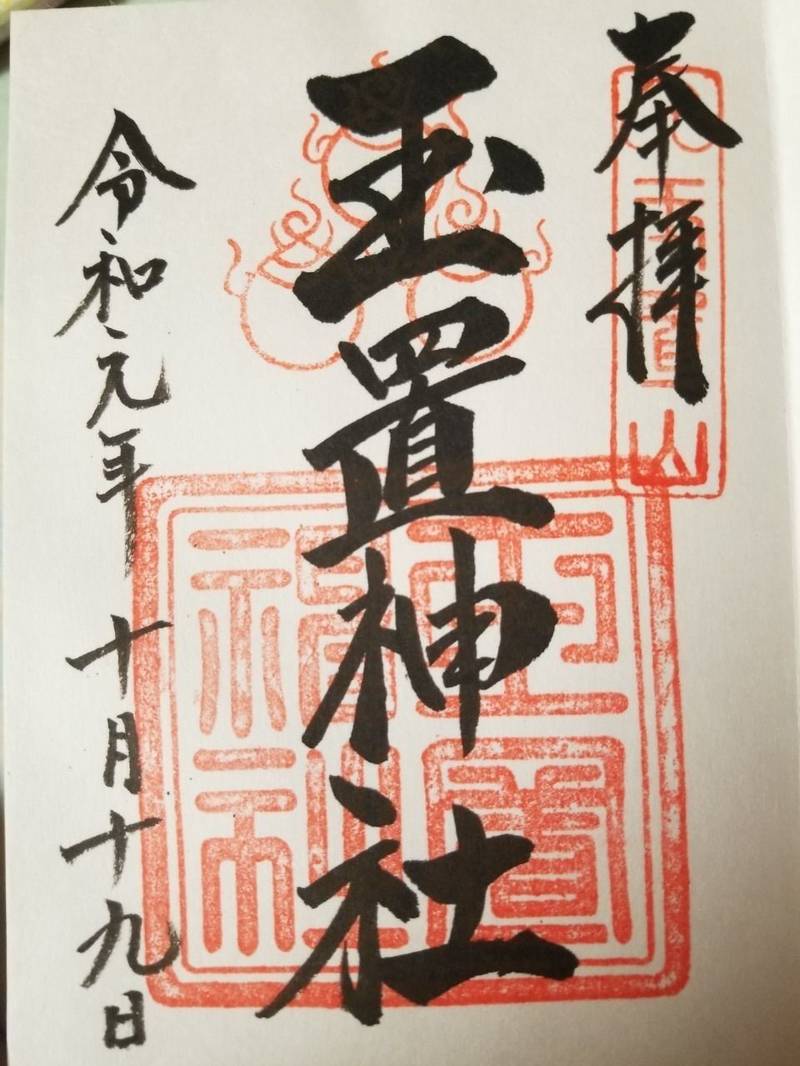 奉拝
玉置山
玉置神社
玉置神社
令和元年 十月十九日